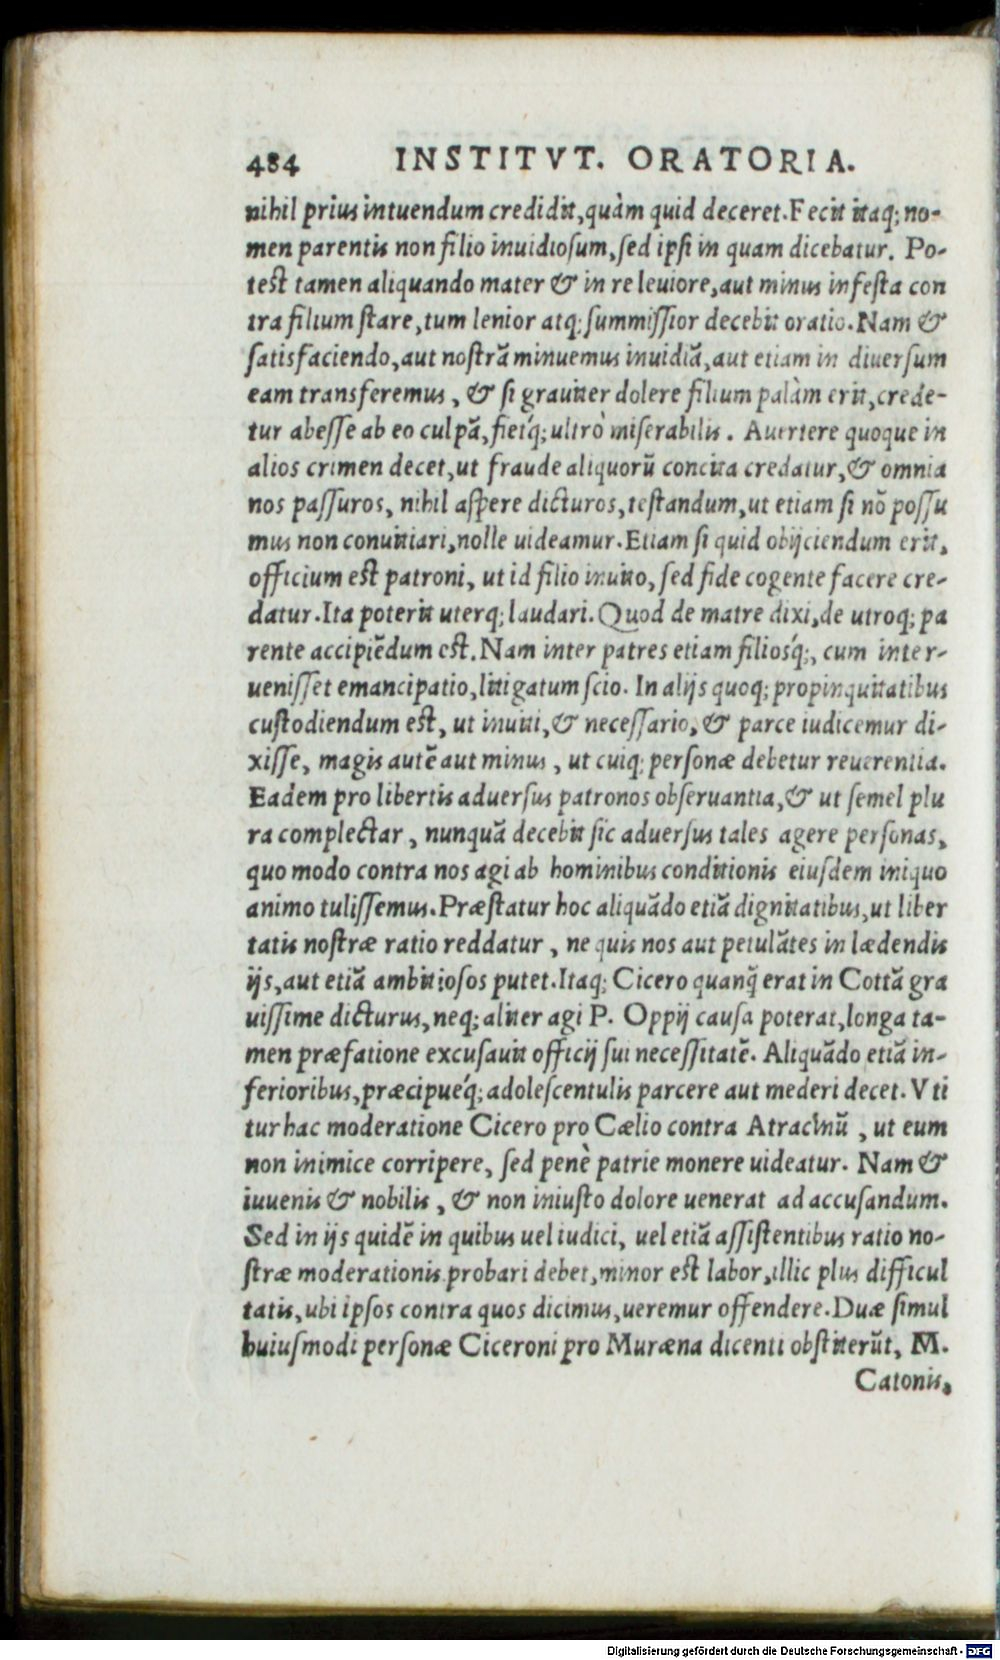 484 INSTITVT. ORATORIA.
nihil prius intuendum credidit, quàm quid deceret. Fecit itaq; no-
men parentis non filio inuidiosum, sed ipsi in quam dicebatur. Po-
test tamen aliquando mater & in re leuiore, aut minus infesta con
tra filium stare, tum lenior atq; summissior decebit oratio. Nam &
satisfaciendo, aut nostrā minuemus inuidiā, aut etiam in diuersum
eam transferemus, & si grauiter dolere filium palàm erit, crede-
tur abesse ab eo culpā, fietq́; ultrò miserabilis. Auertere quoque in
alios crimen decet, ut fraude aliquorū concita credatur, & omnia
nos passuros, nihil aspere dicturos, testandum, ut etiam si nō possu
mus non conuitiari, nolle uideamur. Etiam si quid obijciendum erit,
officium est patroni, ut id filio inuito, sed fide cogente facere cre-
datur. Ita poterit uterq; laudari. Quod de matre dixi, de utroq; pa
rente accipiēdum est. Nam inter patres etiam filiosq́;, cum inter-
uenisset emancipatio, litigatum scio. In alijs quoq; propinquitatibus
custodiendum est, ut inuiti, & necessario, & parce iudicemur di-
xisse, magis autē aut minus, ut cuiq; personæ debetur reuerentia.
Eadem pro libertis aduersus patronos obseruantia, & ut semel plu
ra complectar, nunquā decebit sic aduersus tales agere personas,
quo modo contra nos agi ab hominibus conditionis eiusdem iniquo
animo tulissemus. Præstatur hoc aliquādo etiā dignitatibus, ut liber
tatis nostræ ratio reddatur, ne quis nos aut petulātes in lædendis
ijs, aut etiā ambitiosos putet. Itaq; Cicero quanq̃ erat in Cottā gra
uissime dicturus, neq; aliter agi P. Oppij causa poterat, longa ta-
men præfatione excusauit officij sui necessitatē. Aliquādo etiā in-
ferioribus, præcipueq́; adolescentulis parcere aut mederi decet. Vti
tur hac moderatione Cicero pro Cælio contra Atracinū, ut eum
non inimice corripere, sed penè patrie monere uideatur. Nam &
iuuenis & nobilis, & non iniusto dolore uenerat ad accusandum.
Sed in ijs quidē in quibus uel iudici, uel etiā assistentibus ratio no-
stræ moderationis probari debet, minor est labor, illic plus difficul
tatis, ubi ipsos contra quos dicimus, ueremur offendere. Duæ simul
huiusmodi personæ Ciceroni pro Muræna dicenti obstiterūt, M.
Catonis,
Digitalisierung gefördert durch die Deutsche Forschungsgemeinschaft - DFG